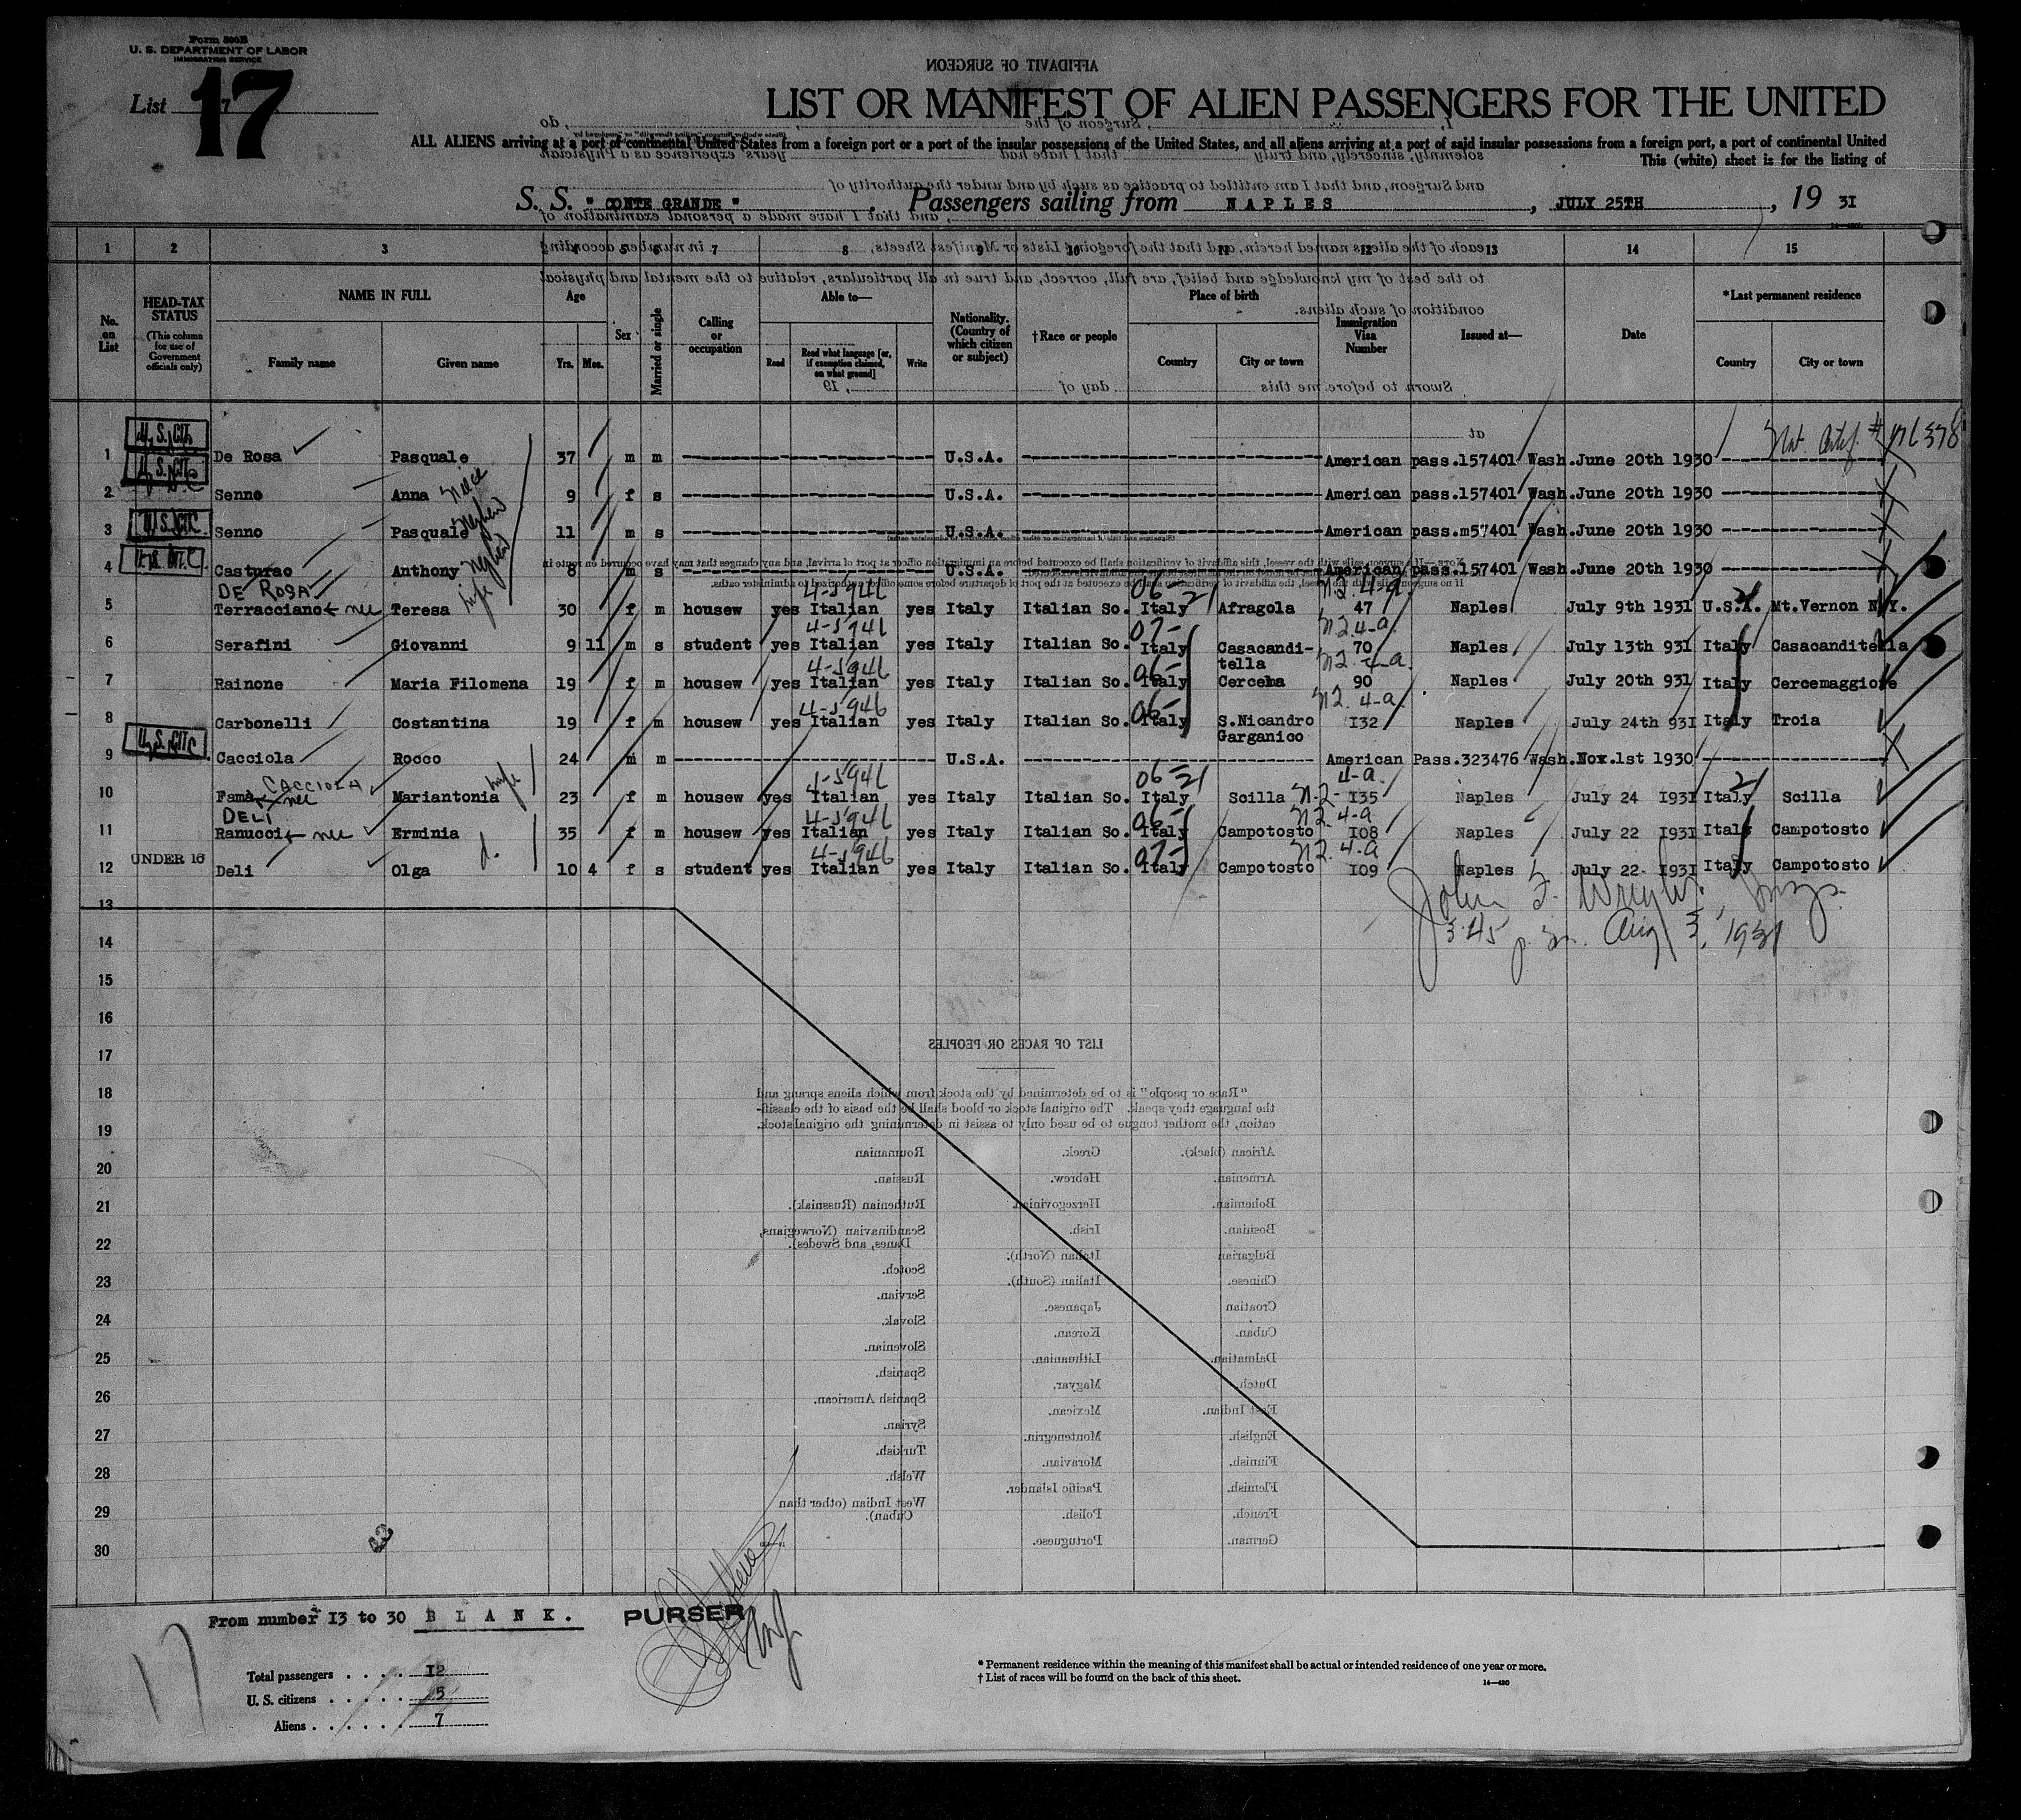 Form 500B
U. S. DEPARTMENT OF LABOR
IMMIGRATION SERVICE
List 17
17
AFFIDAVIT OF SURGEON
LIST OR MANIFEST OF ALIEN PASSENGERS FOR THE UNITED
ALL ALIENS arriving at a port of continental United States from a foreign port or a port of the insular possessions of the United States, and all aliens arriving at a port of said insular possessions from a foreign port, a port of continental United
This (white) sheet is for the listing of
S. S. " CONTE GRANDE " , Passengers sailing from NAPLES , JULY 25TH , 19 3I
1 2 3 4 5 6 7 8 9 10 11 12 13 14 15
No. on List
HEAD-TAX STATUS (This column for use of Government officials only)
NAME IN FULL Family name Given name
Age Yrs. Mos.
Sex
Married or single
Calling or occupation
Able to— Read Read what language [or, if exemption claimed, on what ground] Write
Nationality. (Country of which citizen or subject)
†Race or people
Place of birth Country City or town
Immigration Visa Number
Issued at—
Date
*Last permanent residence Country City or town
Nat. Certif. #
1 U.S. CIT. De Rosa Pasquale 37 m m U.S.A. American pass.157401 Wash.June 20th 1930
2 U.S. CIT. Senno Anna niece 9 f s U.S.A. American pass.157401 Wash.June 20th 1930
3 U.S. CIT. Senno Pasquale nephew 11 m s U.S.A. American pass.m57401 Wash.June 20th 1930
4 U.S. CIT. Casturao Anthony nephew 8 m s U.S.A. American pass.157401 Wash.June 20th 1930
DE ROSA 4-5946 06-21 N2.4-a.
5 Terracciano nee Teresa wife 30 f m housew yes Italian yes Italy Italian So. Italy Afragola 47 Naples July 9th 1931 U.S.A. Mt.Vernon N.Y.
4-5946 07- N2.4-a.
6 Serafini Giovanni 9 11 m s student yes Italian yes Italy Italian So. Italy Casacandi-tella 70 Naples July 13th 931 Italy Casacanditella
4-5946 06- N2.4-a.
7 Rainone Maria Filomena 19 f m housew yes Italian yes Italy Italian So. Italy Cercema 90 Naples July 20th 931 Italy Cercemaggiore
4-5946 06- N2.4-a.
8 Carbonelli Costantina 19 f m housew yes Italian yes Italy Italian So. Italy S.Nicandro Garganico I32 Naples July 24th 93I Italy Troia
9 U.S. CIT. Cacciola Rocco 24 m m U.S.A. American Pass.323476 Wash.Nox.1st 1930
CACCIOLA 4-5946 06-21 4-a. 21
10 Fama nee Mariantonia wife 23 f m housew yes Italian yes Italy Italian So. Italy Scilla N.2- I35 Naples July 24 I93I Italy Scilla
DELI 4-5946 06- N2.4-a
11 Ranucci nee Erminia 35 f m housew yes Italian yes Italy Italian So. Italy Campotosto I08 Naples July 22 I93I Italy Campotosto
UNDER 16 4-5946 07- N2.4-a
12 Deli Olga d. 10 4 f s student yes Italian yes Italy Italian So. Italy Campotosto I09 Naples July 22 I93I Italy Campotosto
John F. Wright, Insp.
3.45 p.m. Aug 3, 1931
13
14
15
16
17
18
19
20
21
22
23
24
25
26
27
28
29
30
LIST OF RACES OR PEOPLES
"Race or people" is to be determined by the stock from which aliens sprang and
the language they speak. The original stock or blood shall be the basis of the classifi-
cation, the mother tongue to be used only to assist in determining the original stock.
African (black). Greek. Roumanian
Armenian. Hebrew. Russian.
Bohemian. Herzegovinian. Ruthenian (Russniak).
Bosnian. Irish. Scandinavian (Norwegians, Danes, and Swedes).
Bulgarian Italian (North). Scotch.
Chinese. Italian (South). Servian.
Croatian Japanese. Slovak.
Cuban. Korean. Slovenian.
Dalmatian. Lithuanian. Spanish.
Dutch. Magyar. Spanish American.
East Indian. Mexican. Syrian.
English. Montenegrin. Turkish.
Finnish. Moravian. Welsh.
Flemish. Pacific Islander. West Indian (other than Cuban).
French. Polish.
German. Portuguese.
From number I3 to 30 BLANK.
PURSER
17
Total passengers . . . . I2
U. S. citizens . . . . . 5
Aliens . . . . . . 7
* Permanent residence within the meaning of this manifest shall be actual or intended residence of one year or more.
† List of races will be found on the back of this sheet.
14—430